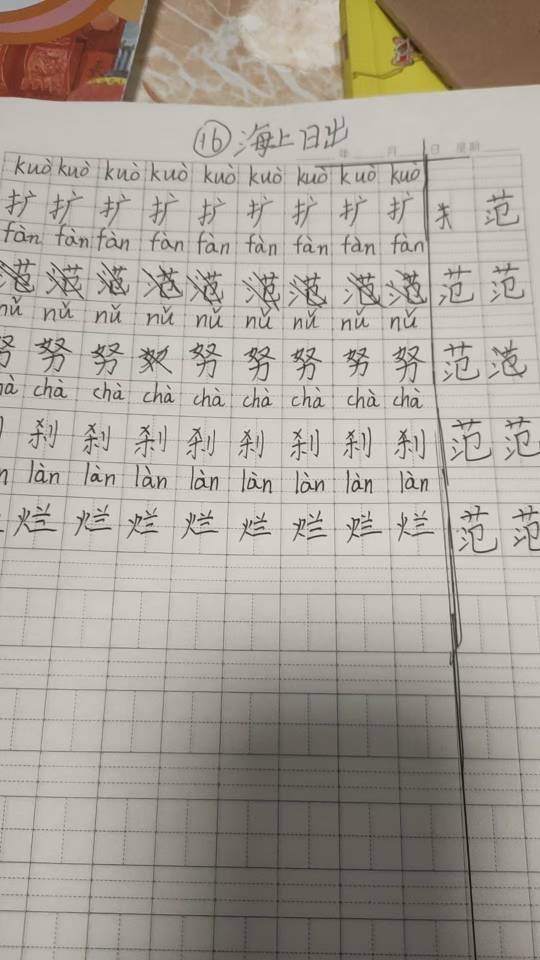 ⑯海上日出
年 月 日 星期
kuò kuò kuò kuò kuò kuò kuò kuò kuò
扩 扩 扩 扩 扩 扩 扩 扩 扩 范
fàn fàn fàn fàn fàn fàn fàn fàn fàn
范 范
nǔ nǔ nǔ nǔ nǔ nǔ nǔ nǔ nǔ
努 努 努 努 努 努 努 努 范 范
chà chà chà chà chà chà chà chà
刹 刹 刹 刹 刹 刹 刹 刹 范 范
làn làn làn làn làn làn làn làn
烂 烂 烂 烂 烂 烂 烂 烂 范 范